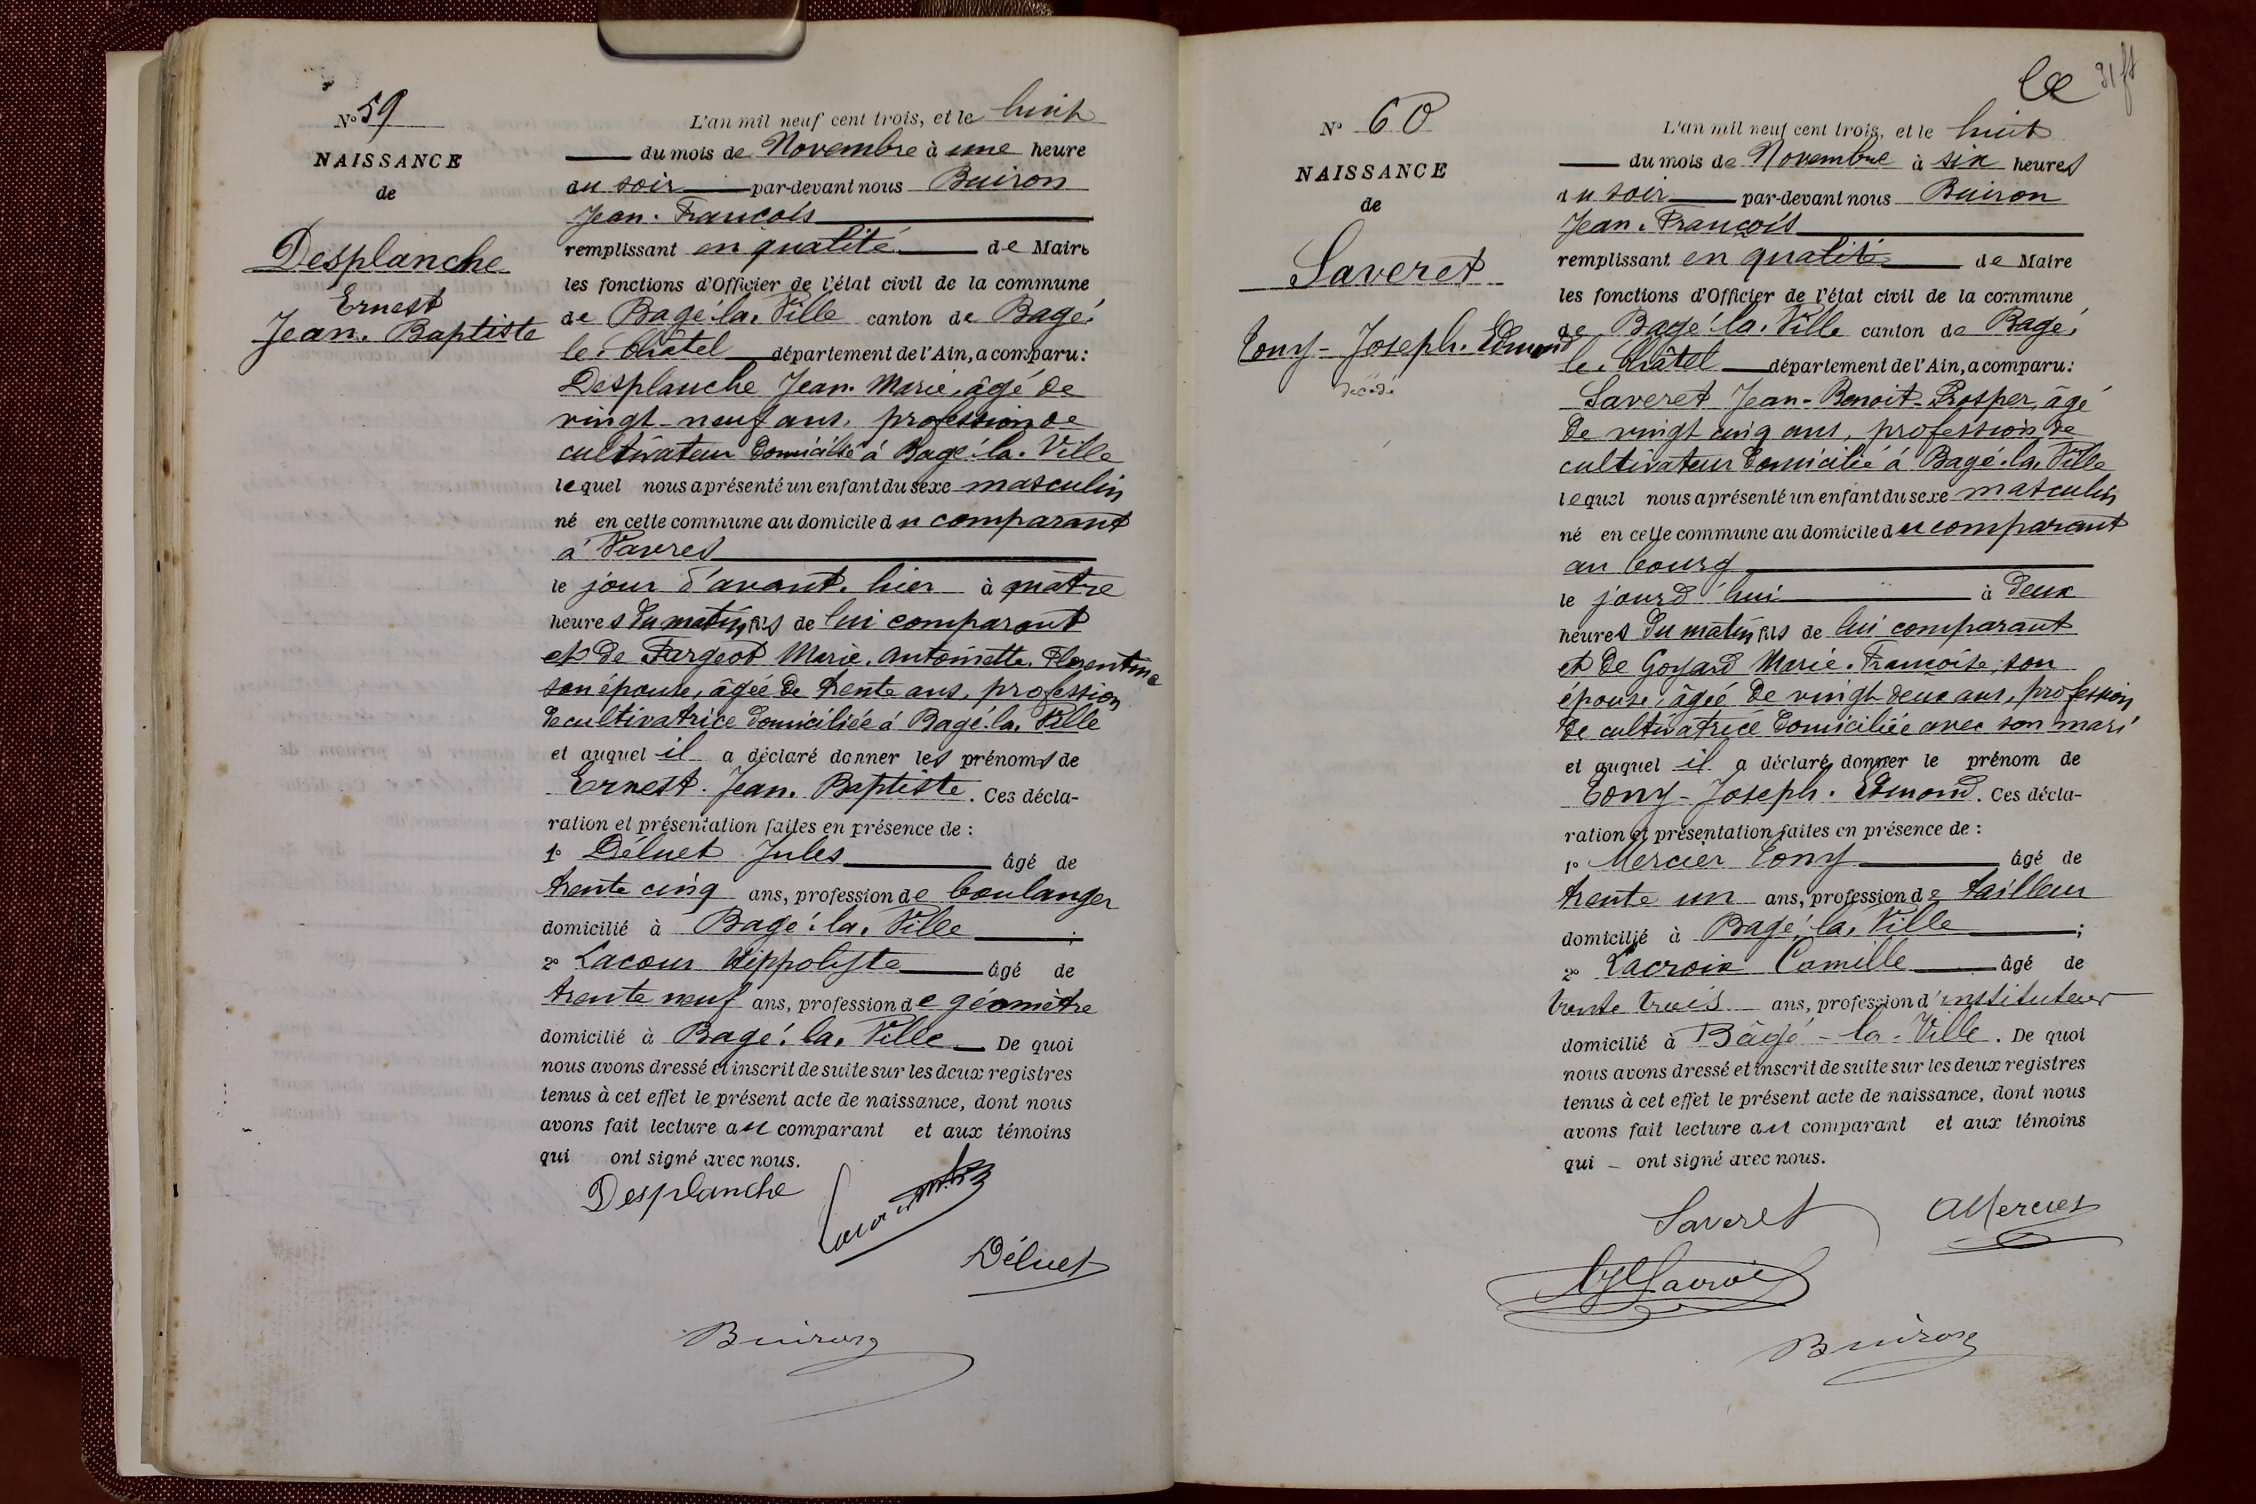 N° 59
NAISSANCE
de
Desplanche
Ernest
Jean. Baptiste
L'an mil neuf cent trois, et le huit
du mois de Novembre à une heure
du soir par-devant nous Buiron
Jean. François
remplissant en qualité de Maire
les fonctions d'Officier de l'état civil de la commune
de Bagé. la. Ville canton de Bagé.
le. Châtel département de l'Ain, a comparu :
Desplanche Jean. Marie, âgé de
vingt-neuf ans, profession de
cultivateur domicilié à Bagé. la. Ville
lequel nous a présenté un enfant du sexe masculin
né en cette commune au domicile du comparant
à Vavres
le jour d'avant. hier à quatre
heures du matin fils de lui comparant
et de Fargeot Marie. Antoinette. Florentine
son épouse, âgée de trente ans, profession
de cultivatrice domiciliée à Bagé. la. Ville
et auquel il a déclaré donner les prénoms de
Ernest. Jean. Baptiste. Ces décla-
ration et présentation faites en présence de :
1° Déluet Jules âgé de
trente cinq ans, profession de boulanger
domicilié à Bagé. la. Ville ;
2° Lacour Hippolyte âgé de
trente neuf ans, profession de géomètre
domicilié à Bagé. la. Ville De quoi
nous avons dressé et inscrit de suite sur les deux registres
tenus à cet effet le présent acte de naissance, dont nous
avons fait lecture au comparant et aux témoins
qui ont signé avec nous.
Desplanche
Déluet
Buiron
31 ft
N° 60
NAISSANCE
de
Saveret
Tony-Joseph. Edmond
décédé
L'an mil neuf cent trois, et le huit
du mois de Novembre à six heures
du soir par-devant nous Buiron
Jean. François
remplissant en qualité de Maire
les fonctions d'Officier de l'état civil de la commune
de Bagé. la. Ville canton de Bagé.
le. Châtel département de l'Ain, a comparu :
Saveret Jean-Benoit-Prosper, âgé
de vingt cinq ans, profession de
cultivateur domicilié à Bagé. la. Ville
lequel nous a présenté un enfant du sexe masculin
né en cette commune au domicile du comparant
au bourg
le jourd'hui à deux
heures du matin fils de lui comparant
et de Goyard Marie. Françoise, son
épouse, âgée de vingt deux ans, profession
de cultivatrice domiciliée avec son mari
et auquel il a déclaré donner le prénom de
Tony-Joseph. Edmond. Ces décla-
ration et présentation faites en présence de :
1° Mercier Tony âgé de
trente un ans, profession de tailleur
domicilié à Bagé. la. Ville ;
2° Lacroix Camille âgé de
trente trois ans, profession d'instituteur
domicilié à Bâgé-la-Ville. De quoi
nous avons dressé et inscrit de suite sur les deux registres
tenus à cet effet le présent acte de naissance, dont nous
avons fait lecture au comparant et aux témoins
qui - ont signé avec nous.
Saveret
Mercier
Lacroix
Buiron